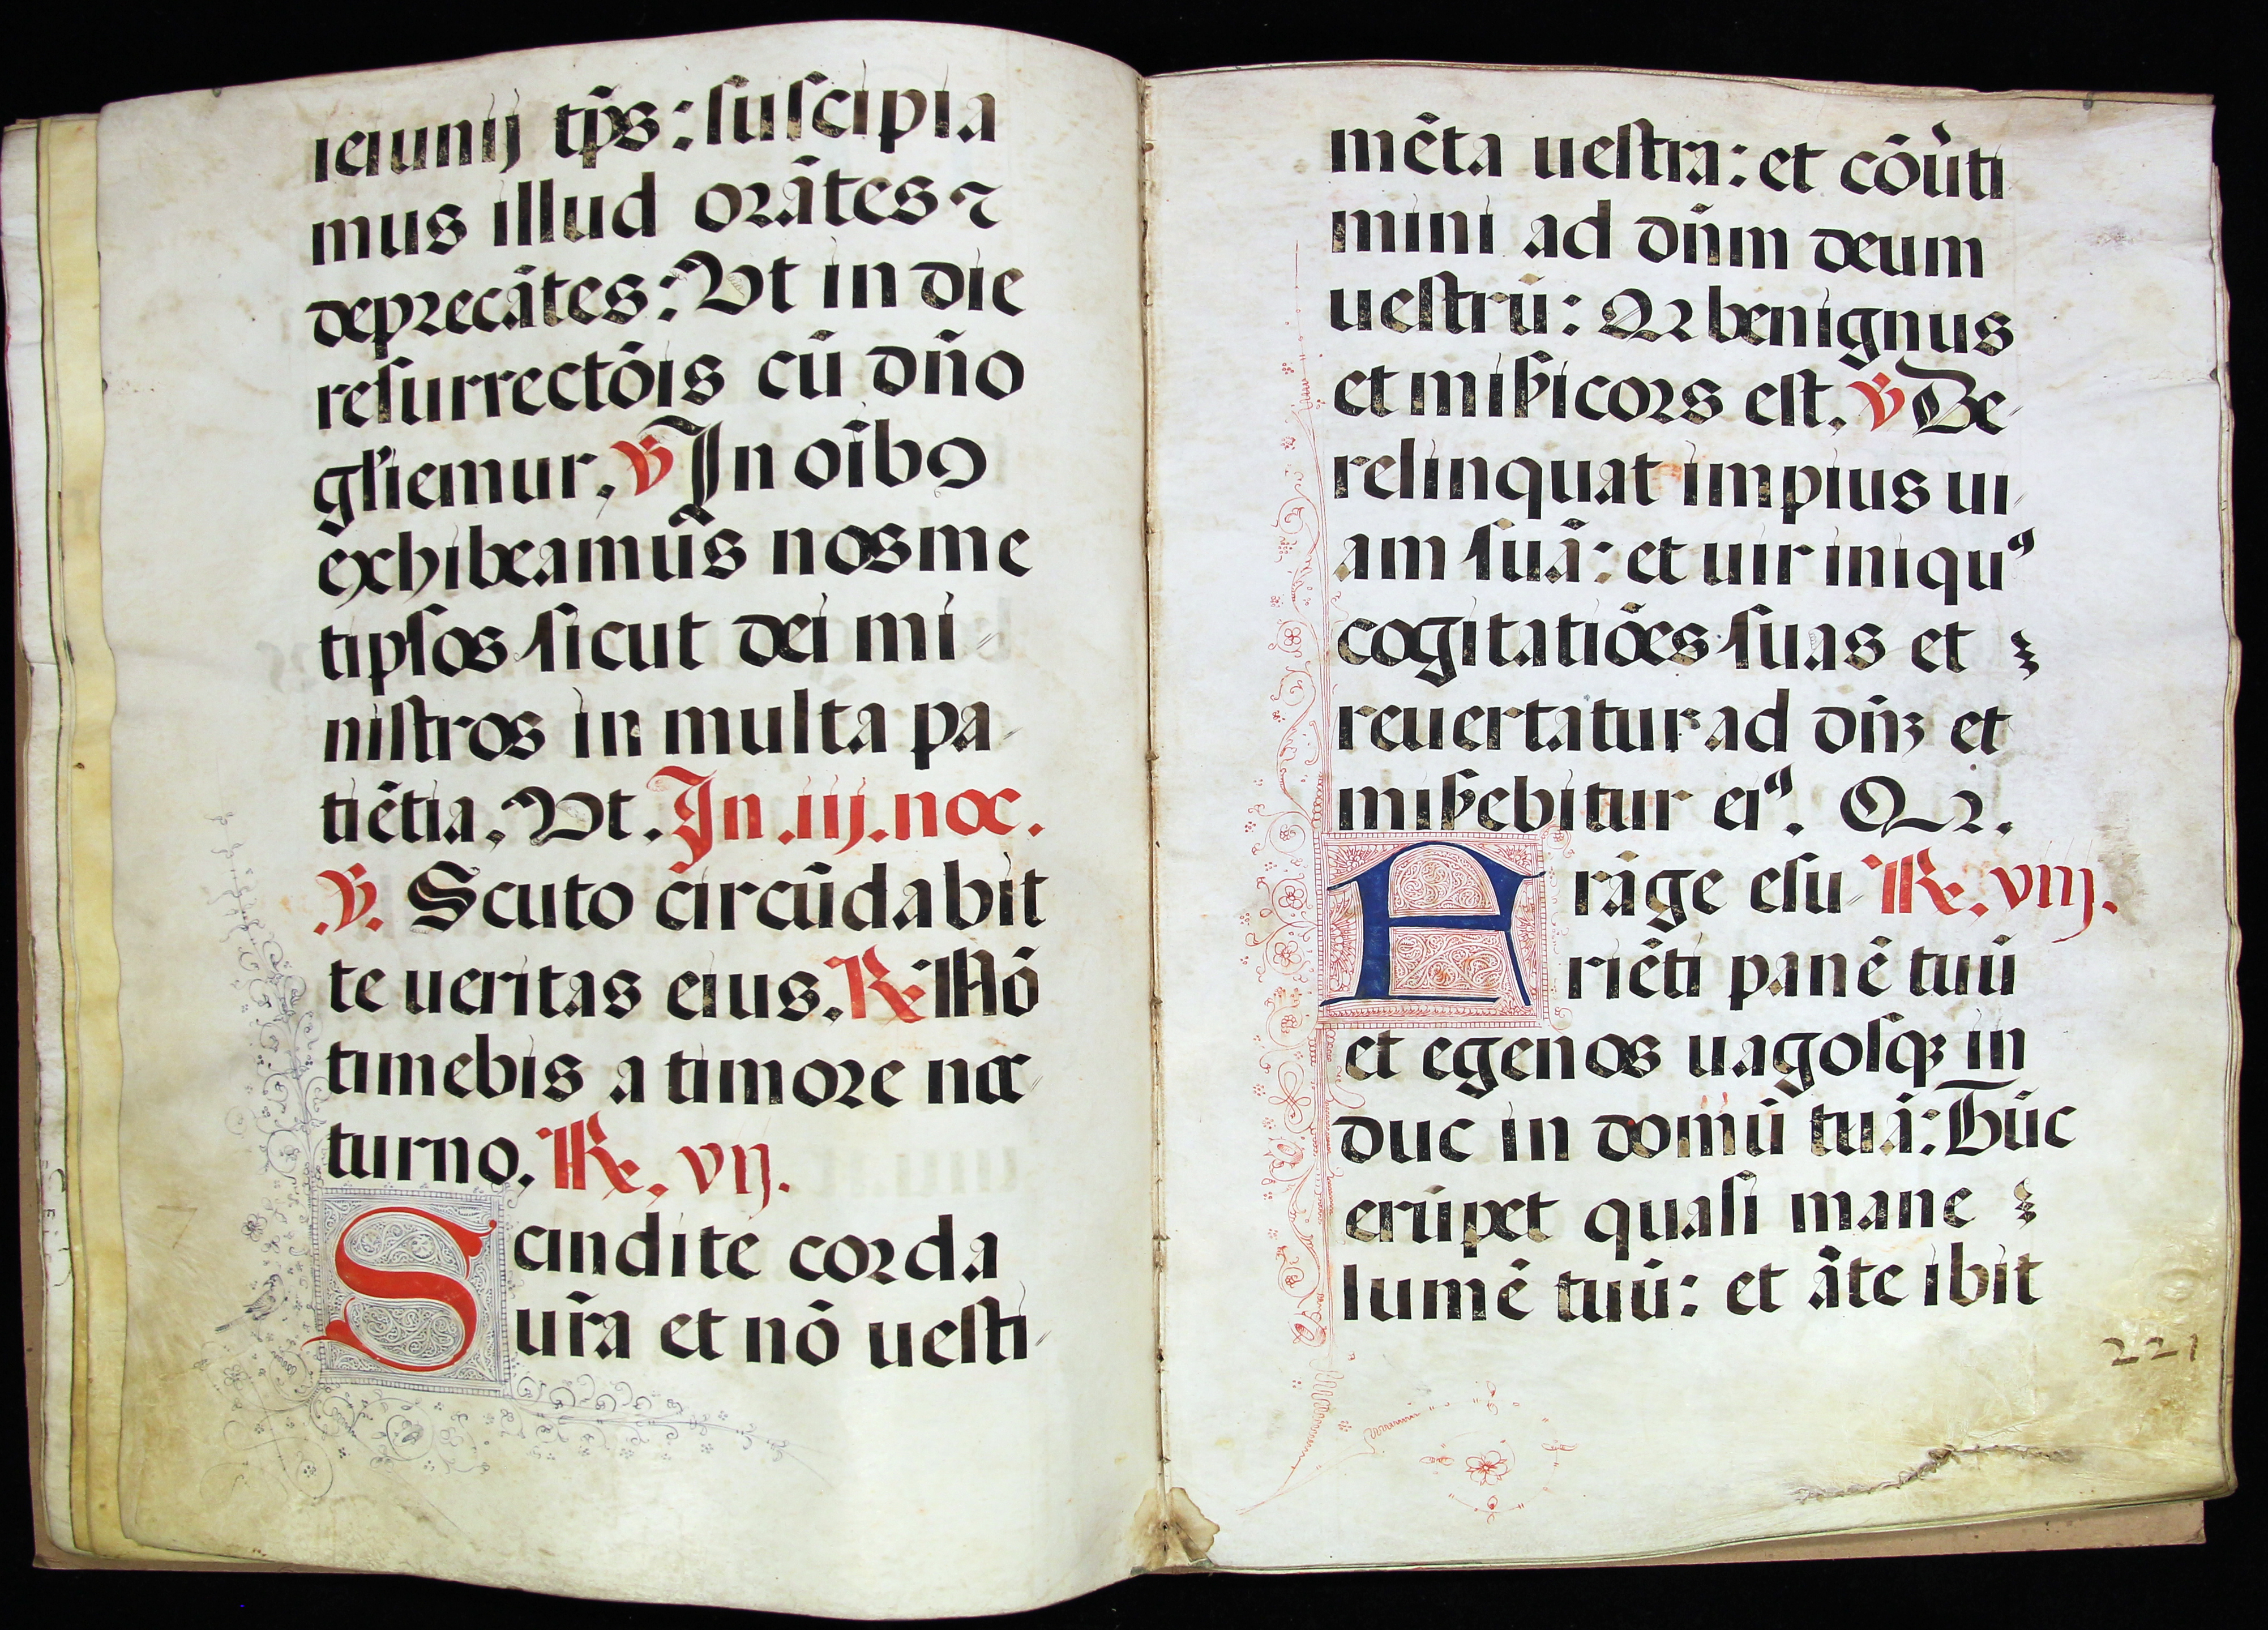 ieiunij tp̄s: suscipia
mus illud orātes ⁊
deprecātes: Ut in die
resurrectōis cū dn̄o
gl̄iemur. ℣ In oībꝰ
exhibeamūs nosme
tipsos sicut dei mi-
nistros in multa pa-
tiētia. Ut. In .iij. noc.
.℣. Scuto circūdabit
te ueritas eius. ℟ Nō
timebis a timore noc-
turno. ℟. vij.
Scindite corda
ur̄a et nō uesti-
mēta uestra: et cōu̓ti
mini ad dn̄m deum
uestrū: Qr benignus
et mis̄icors est. ℣ De-
relinquat impius ui-
am suā: et uir iniquꝰ
cogitatiōes suas et
reuertatur ad dn̄ꝫ et
mis̄ebitur eiꝰ. Qr.
Frāge esu- ℟. viij.
riēti panē tuū
et egenos uagosqꝫ in
duc in domū tuā: Tūc
erūpet quasi mane
lumē tuū: et āte ibit
221